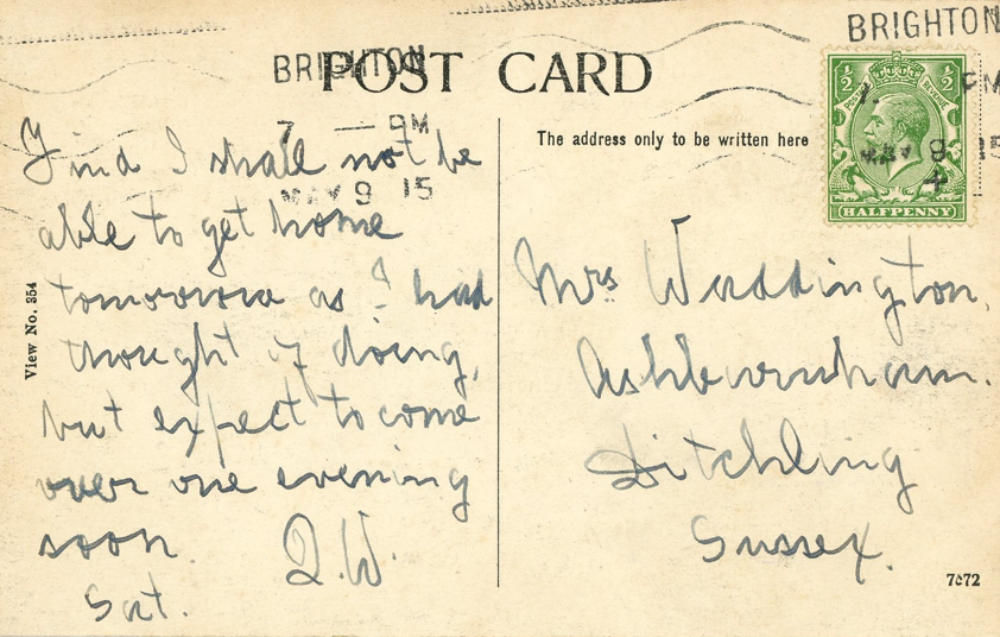 POST CARD
BRIGHTON
7 — PM
MAY 9 15
BRIGHTON
PM
9 15
½ ½
POSTAGE REVENUE
HALFPENNY
The address only to be written here
Find I shall not be
able to get home
tomorrow as I had
thought of doing,
but expect to come
over one evening
soon.
Sat.
View No. 354
Mrs. Waddington,
Ashburnham.
Ditchling
Sussex.
7672